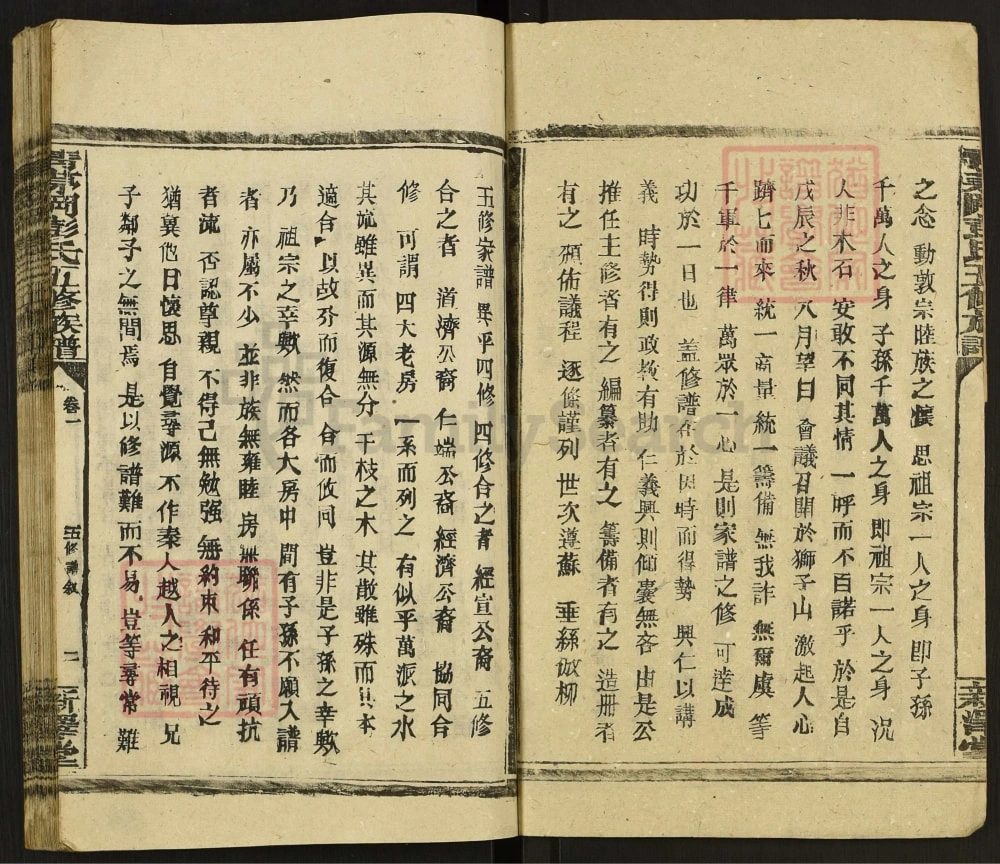 之念 動敦宗睦族之懷 思祖宗一人之身 即子孫
千萬人之身 子孫千萬人之身 即祖宗一人之身 況
人非木石 安敢不同其情 一呼而不百諾乎 於是自
戊辰之秋 八月望日 會議召開於獅子山 激起人心
躋七而來 統一商量 統一籌備 無我詐 無爾虞 等
千軍於一律 萬眾於一心 是則家譜之修 可達成
功於一日也 蓋修譜在於因時而得勢 興仁以講
義 時勢得則政教有助 仁義興則傾囊無吝 由是公
推任主修者有之 編纂者有之 籌備者有之 造册者
有之 頒佈議程 逐條謹列 世次遵蘇 垂絲倣柳
五修家譜 異乎四修 四修合之者 經宣公裔 五修
合之者 道濟公裔 仁端公裔 經濟公裔 協同合
修 可謂 四大老房 一系而列之 有似乎萬派之水
其流雖異而其源無分 千枝之木 其散雖殊而其本
適合 以故分而復合 合而攸同 豈非是子孫之幸歟
乃 祖宗之幸歟 然而各大房中 間有子孫不願入譜
者 亦屬不少 並非族無雍睦 房無聯係 任有頑抗
者流 否認尊親 不得已無勉强 無約束 和平待之
猶襄他日懷思 自覺尋源 不作秦人越人之相視 兄
子鄰子之無間焉 是以修譜難而不易 豈等尋常 難
彭氏五修族譜
卷一
五修譜叙
二